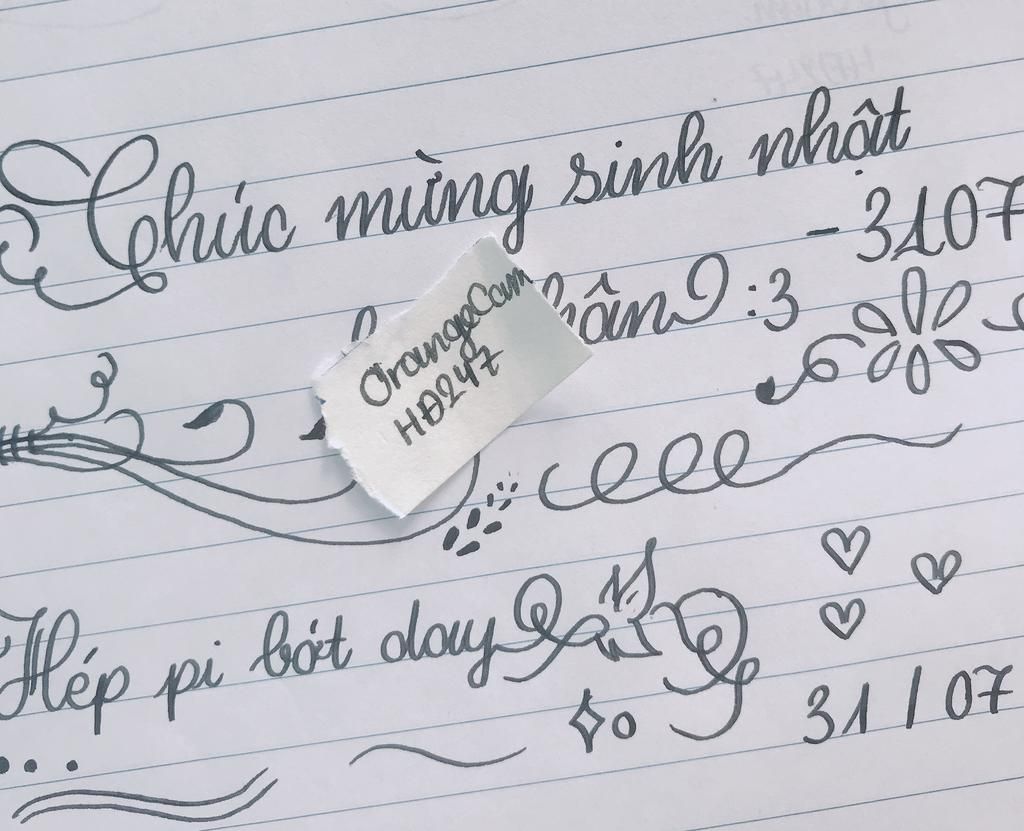 Chúc mừng sinh nhật
- 3107
:3
OrangeCam
HĐ247
Hép pi bớt day
31 / 07